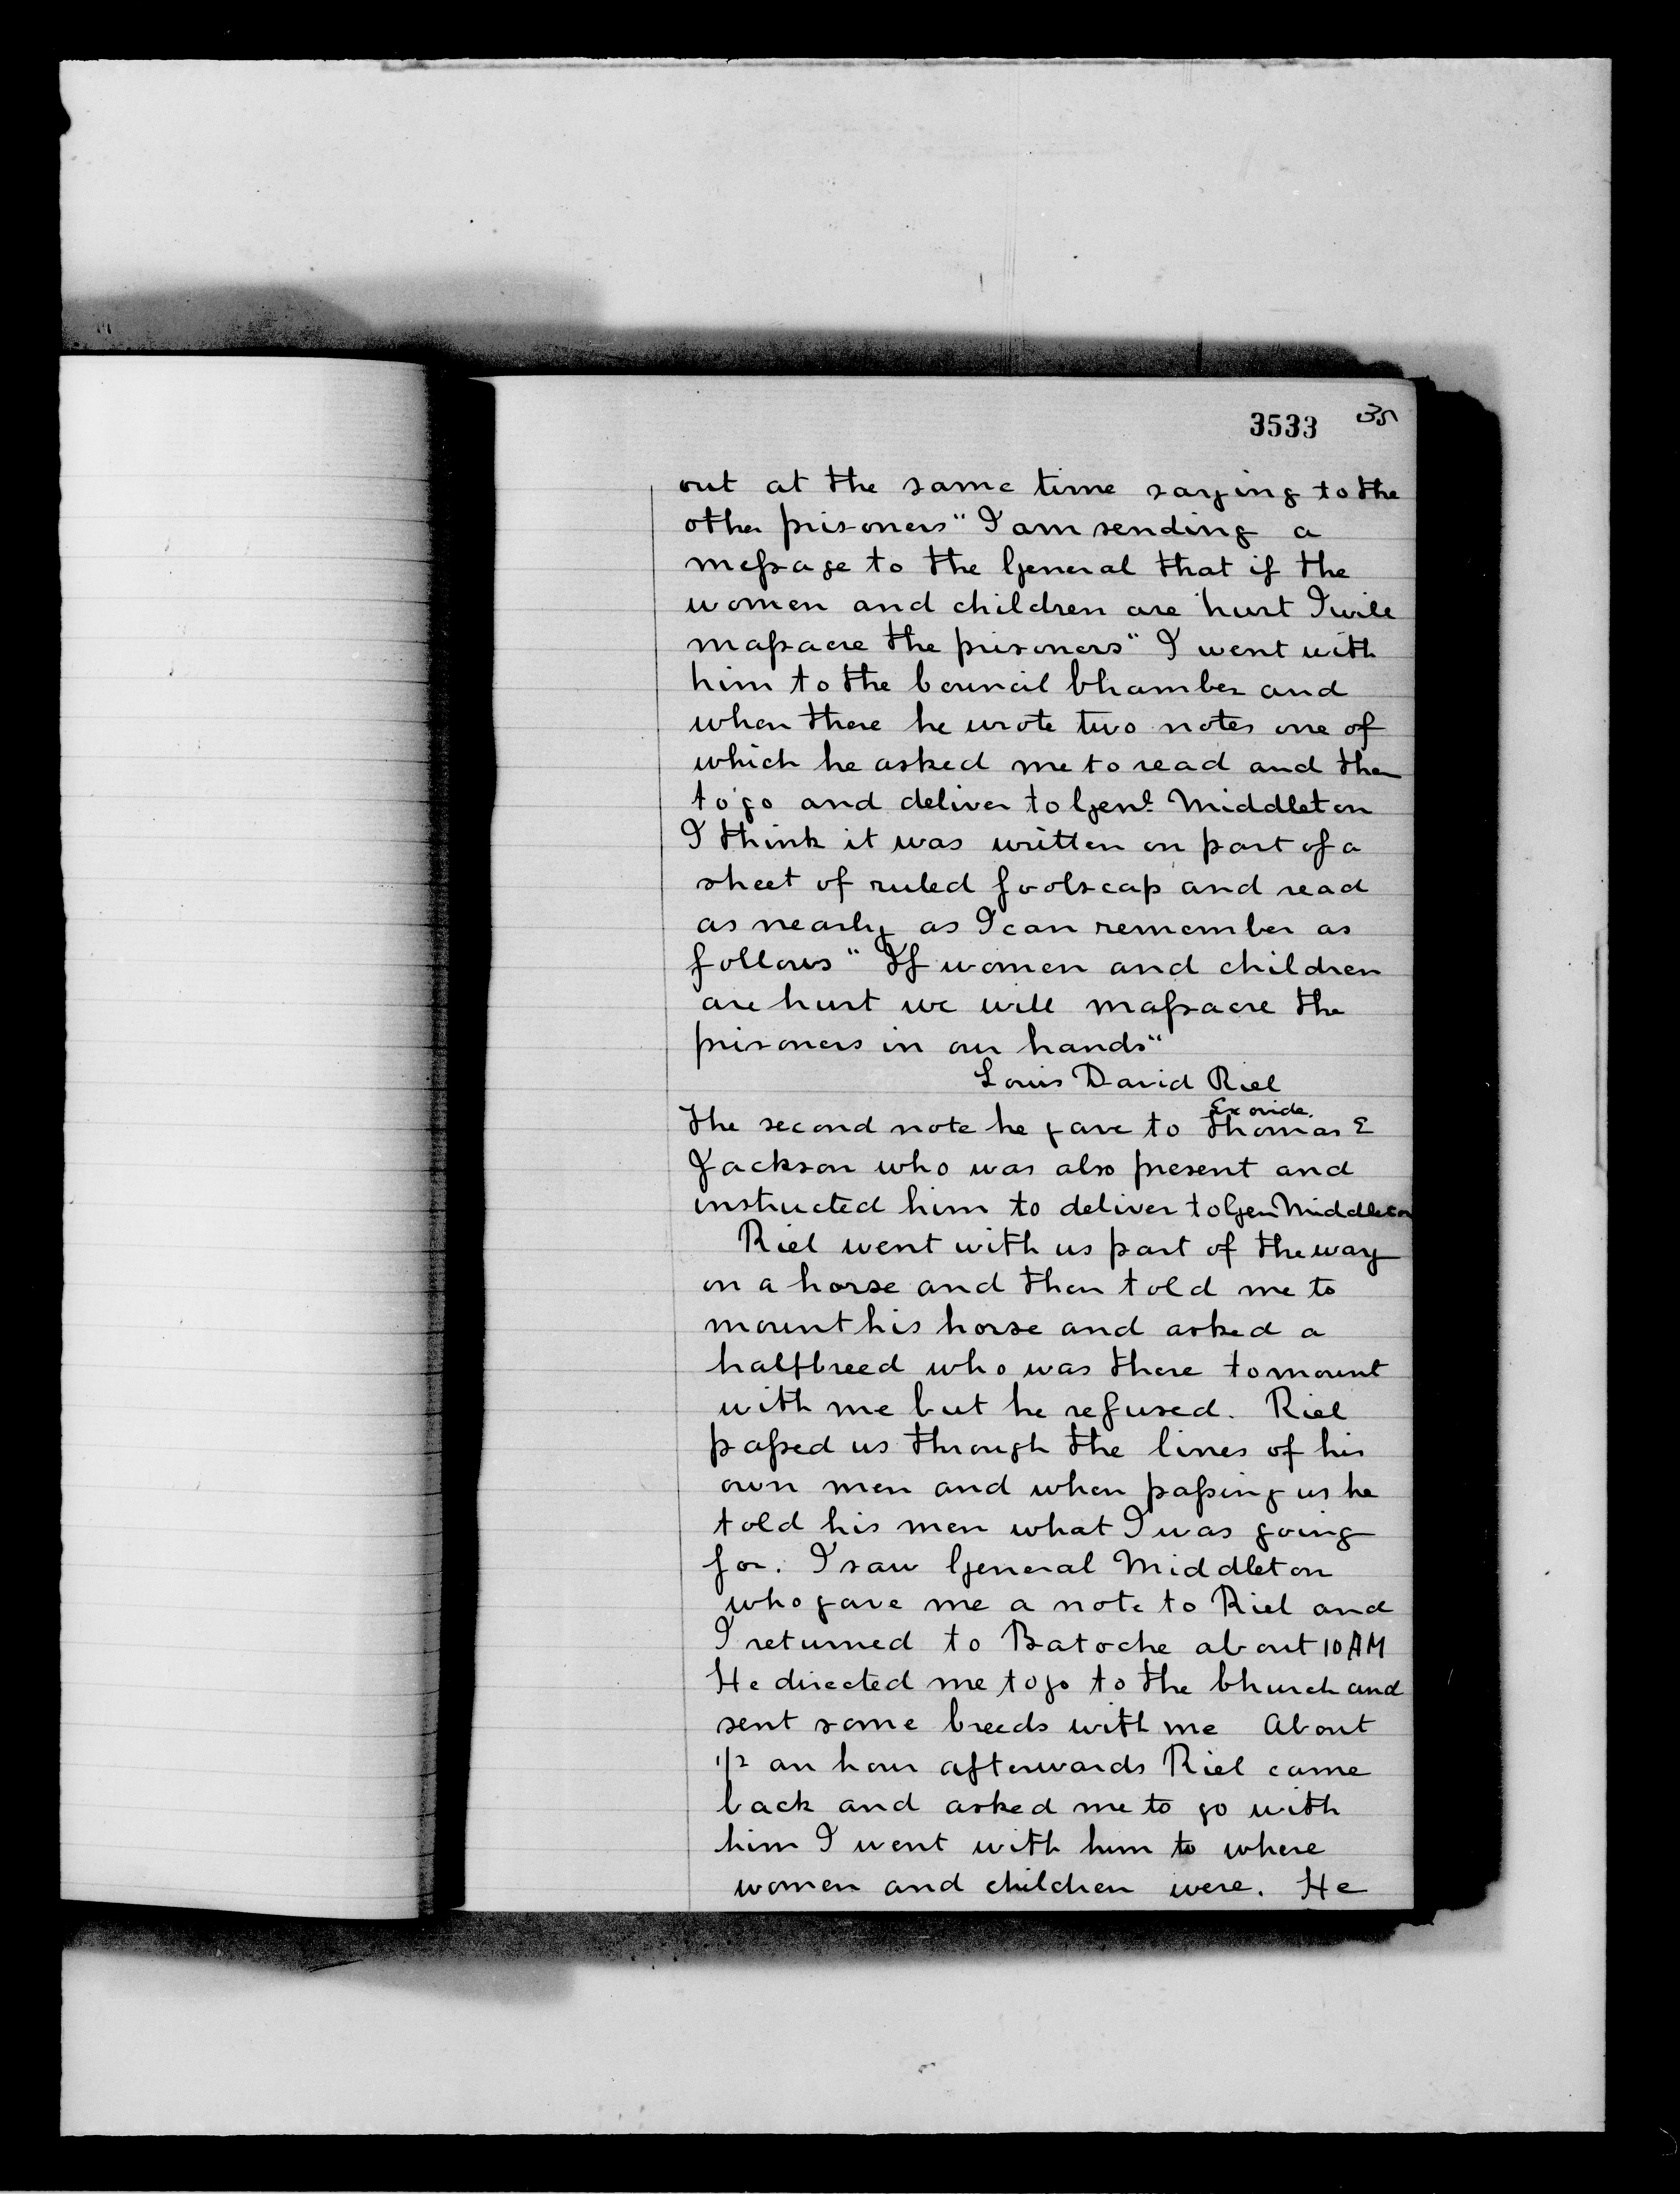 3533 35
out at the same time saying to the
other prisoners "I am sending a
meſsage to the General that if the
women and children are hurt I will
maſsacre the prisoners" I went with
him to the Council Chamber and
when there he wrote two notes one of
which he asked me to read and then
to go and deliver to Genl Middleton
I think it was written on part of a
sheet of ruled foolscap and read
as nearly as I can remember as
follows "If women and children
are hurt we will maſsacre the
prisoners in our hands"
Louis David Riel
The second note he gave to Thomas E
Jackson who was also present and
instructed him to deliver to Gen Middleton
Riel went with us part of the way
on a horse and then told me to
mount his horse and asked a
halfbreed who was there to mount
with me but he refused. Riel
paſsed us through the lines of his
own men and when paſsing us he
told his men what I was going
for. I saw General Middleton
who gave me a note to Riel and
I returned to Batoche about 10 AM
He directed me to go to the Church and
sent some breeds with me About
1/2 an hour afterwards Riel came
back and asked me to go with
him I went with him to where
women and children were. He